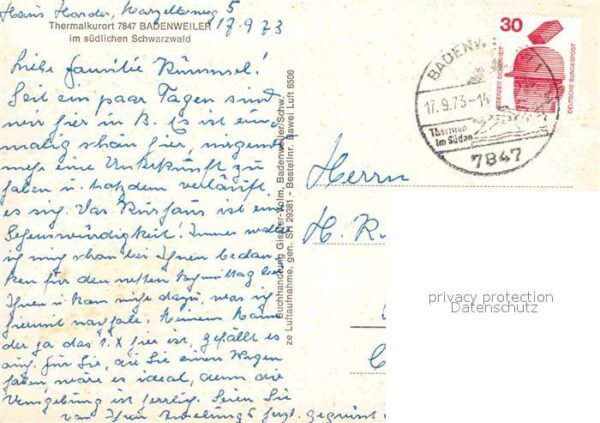 Hans Harder, Marzellerweg 5
Thermalkurort 7847 BADENWEILER
im südlichen Schwarzwald
17.9.73
Liebe Familie Kümmel!
Seit ein paar Tagen sind
wir hier in B. Es ist ein-
malig schön hier, nirgends
eine Unterkunft zu
haben u. trotzdem verläuft
es sich. Das Kurhaus ist eine
Sehenswürdigkeit! Immer wollte
ich mich schon bei Ihnen bedan-
ken für den netten Nachmittag bei
Ihnen u. kam nicht dazu, was ich
hiermit nachhole. Meinem Mann
der ja das 1. x hier ist, gefällt es
auch. Für Sie, die Sie einen Wagen
haben, wäre es ideal, denn die
Umgebung ist herrlig. Seien Sie
von Ihren herzl. gegrüsst
Buchhandlung Gisder-Volm, Badenweiler/Schw.
ze Luftaufnahme, gen. SH 29381 - Bestellnr. Bawei Luft 8506
30
JEDERZEIT SICHERHEIT
DEUTSCHE BUNDESPOST
17.9.73-14
Thermen
im Süden
7847
Herrn
H. K
privacy protection
Datenschutz